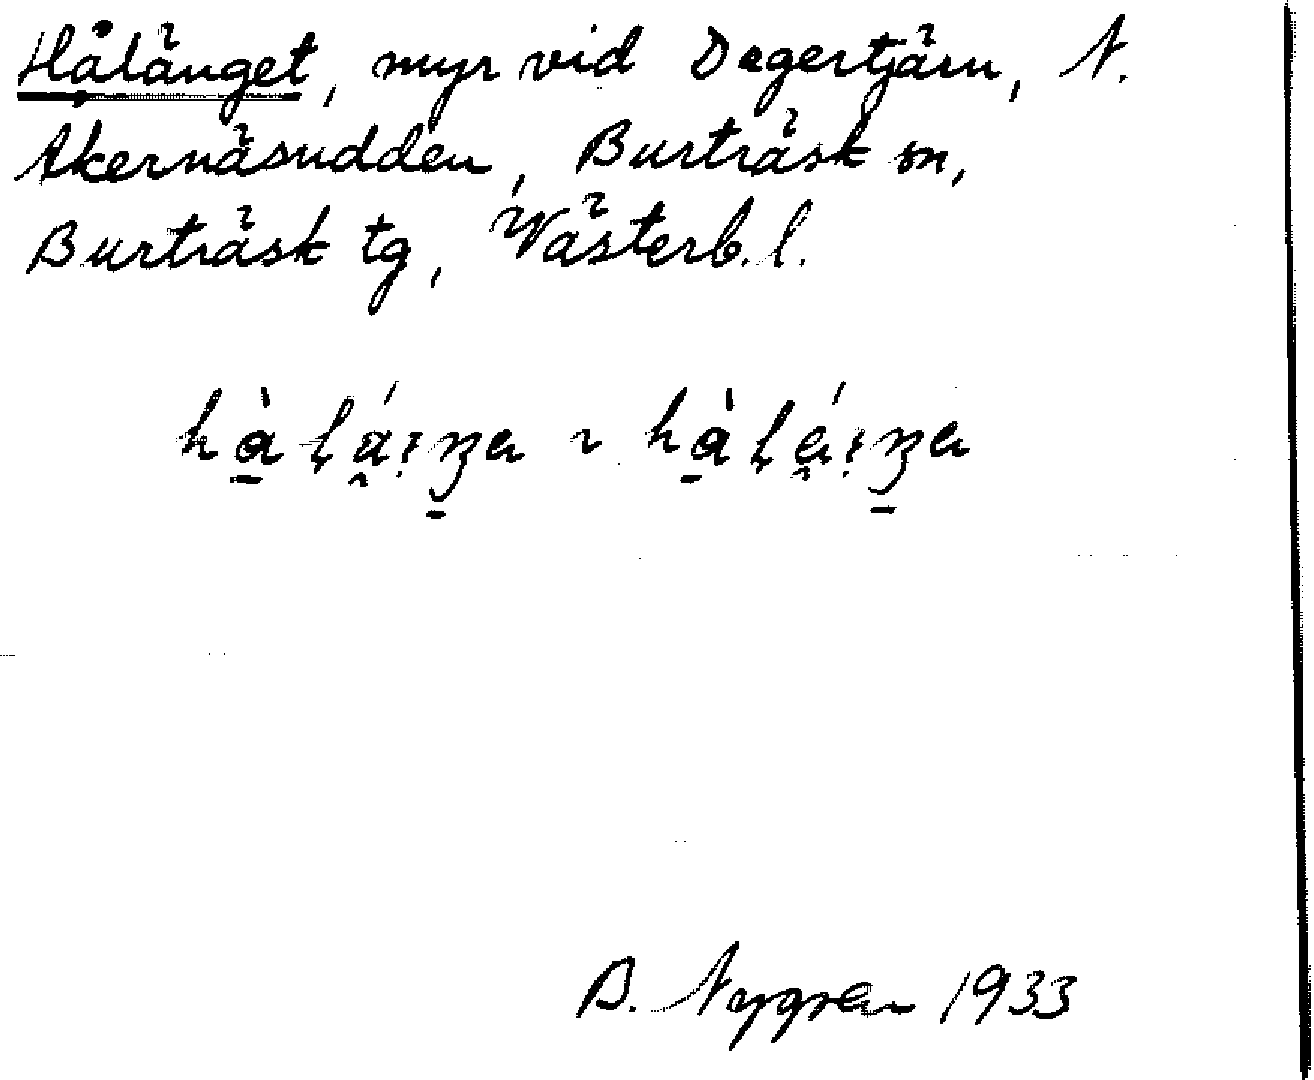 Hålänget, myr vid Degertjärn, N.
Åkernäsudden, Burträsk sn,
Burträsk tg, Västerb. l.
B. Nygren 1933